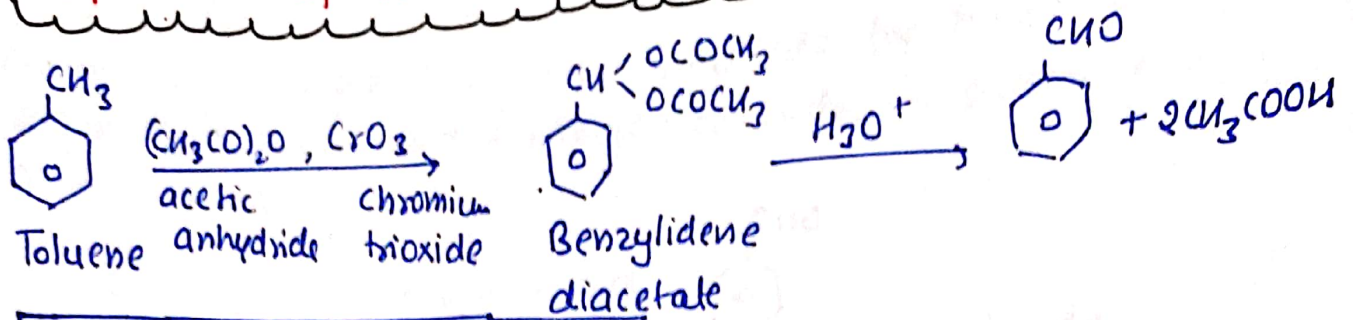 CH3
(CH3CO)2O , CrO3
acetic anhydride
chromium trioxide
Toluene
CH
OCOCH3
OCOCH3
Benzylidene
diacetate
H3O+
CHO
+ 2CH3COOH